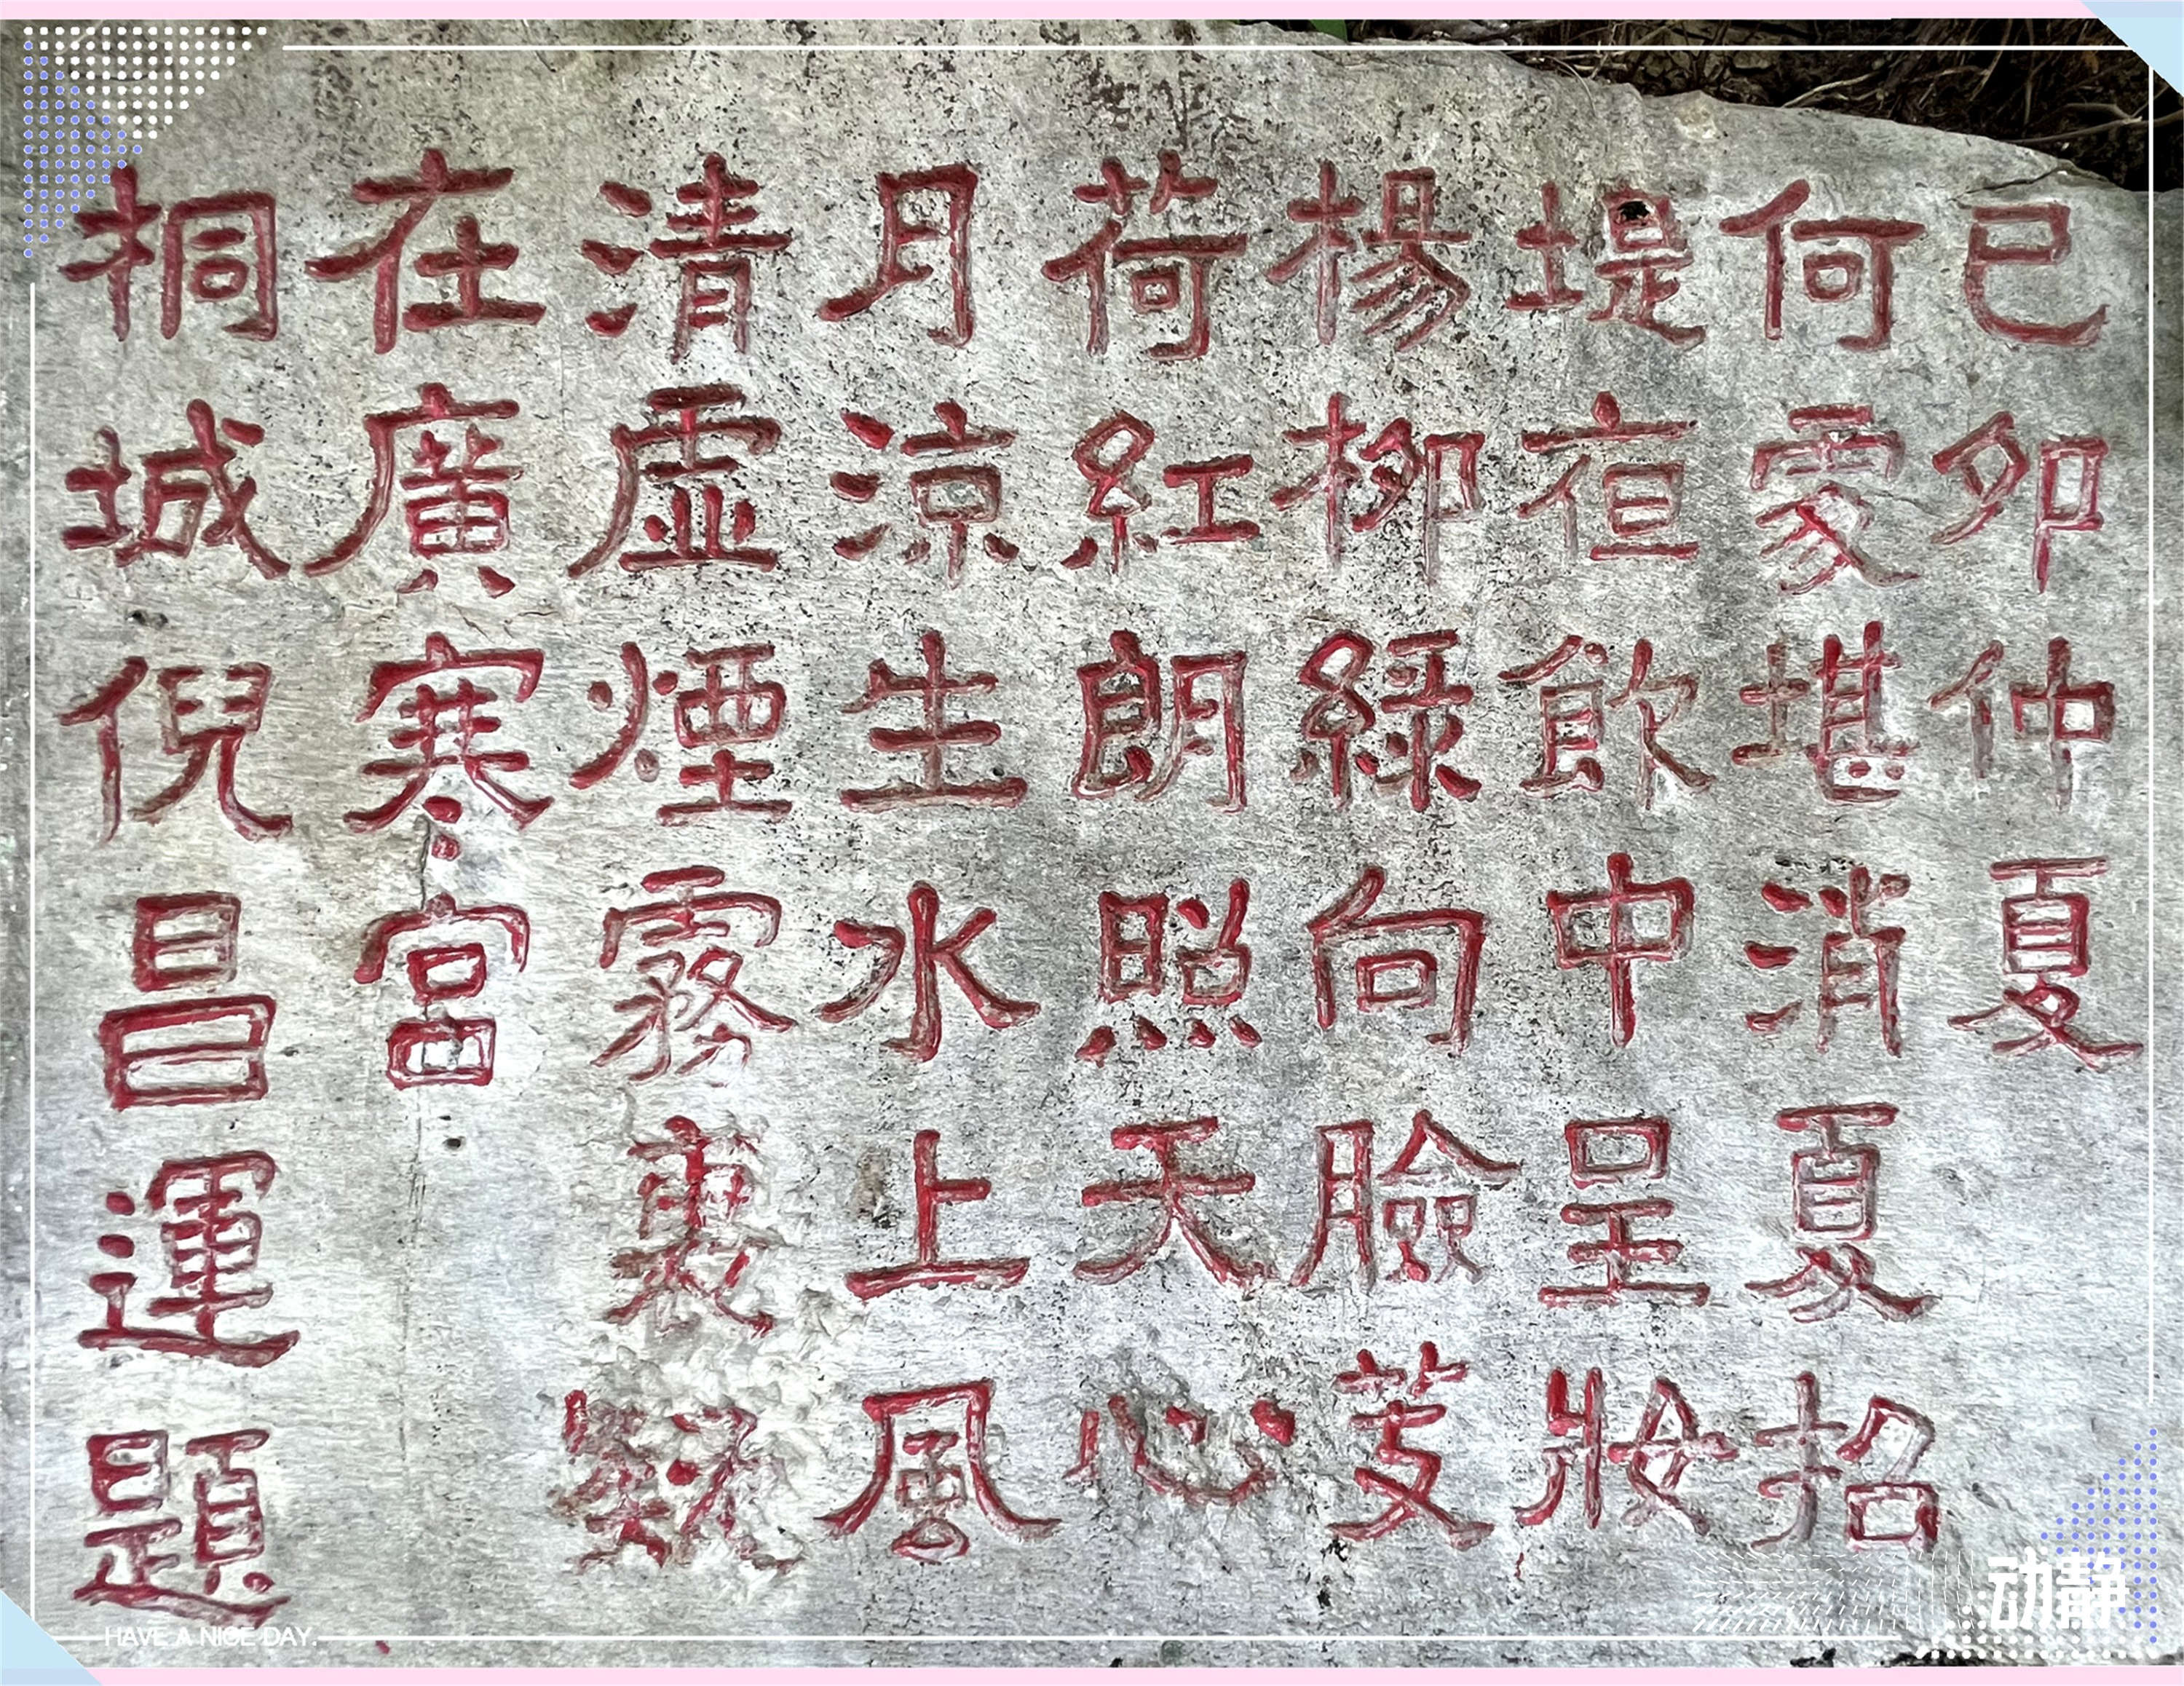 己卯仲夏
何處堪消夏招
堤亱飲中呈妝
楊柳綠向臉芰
荷紅朗照天心
月涼生水上風
清虛煙霧裏疑
在廣寒宮
桐城倪昌運題
动静
HAVE A NICE DAY.